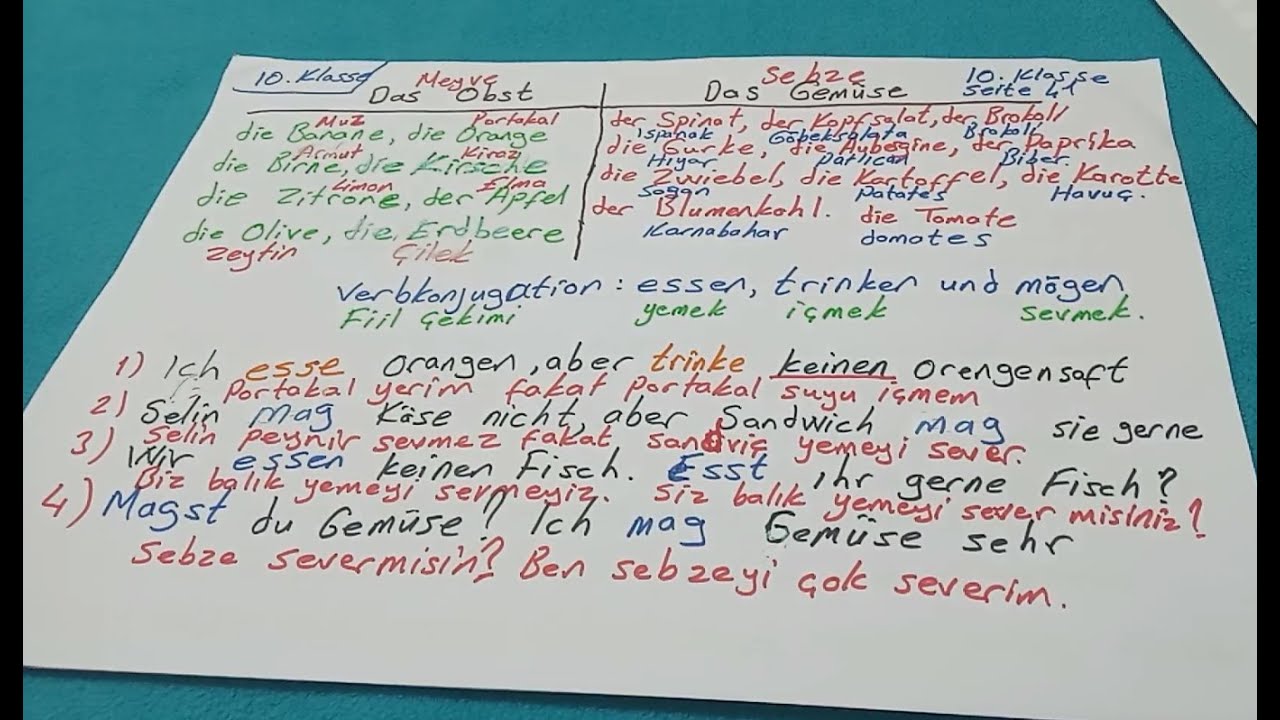 10. Klasse
Meyve
Das Obst
Muz Portakal
die Banane, die Orange
Armut Kiraz
die Birne, die Kirsche
Limon Elma
die Zitrone, der Apfel
die Olive, die Erdbeere
Zeytin Çilek
Sebze 10. Klasse
Das Gemüse Seite 41
der Spinat, der Kopfsalat, der Brokoli
Ispanak Göbeksalata Brokoli
die Gurke, die Aubegine, der Paprika
Hiyar patlican Biber
die Zwiebel, die Kartoffel, die Karotte
Soğan patates Havuç.
der Blumenkohl. die Tomate
Karnabahar domates
Verbkonjugation: essen, trinken und mögen
Fiil Çekimi yemek içmek sevmek.
1) Ich esse orangen, aber trinke keinen orengensaft
Portakal yerim fakat portakal suyu içmem
2) Selin mag Käse nicht, aber Sandwich mag sie gerne
Selin peynir sevmez fakat sandviç yemeyi sever.
3) Wir essen keinen Fisch. Esst ihr gerne Fisch?
Biz balık yemeyi sevmeyiz. Siz balık yemeyi sever misiniz?
4) Magst du Gemüse? Ich mag Gemüse sehr
Sebze severmisin? Ben sebzeyi çok severim.